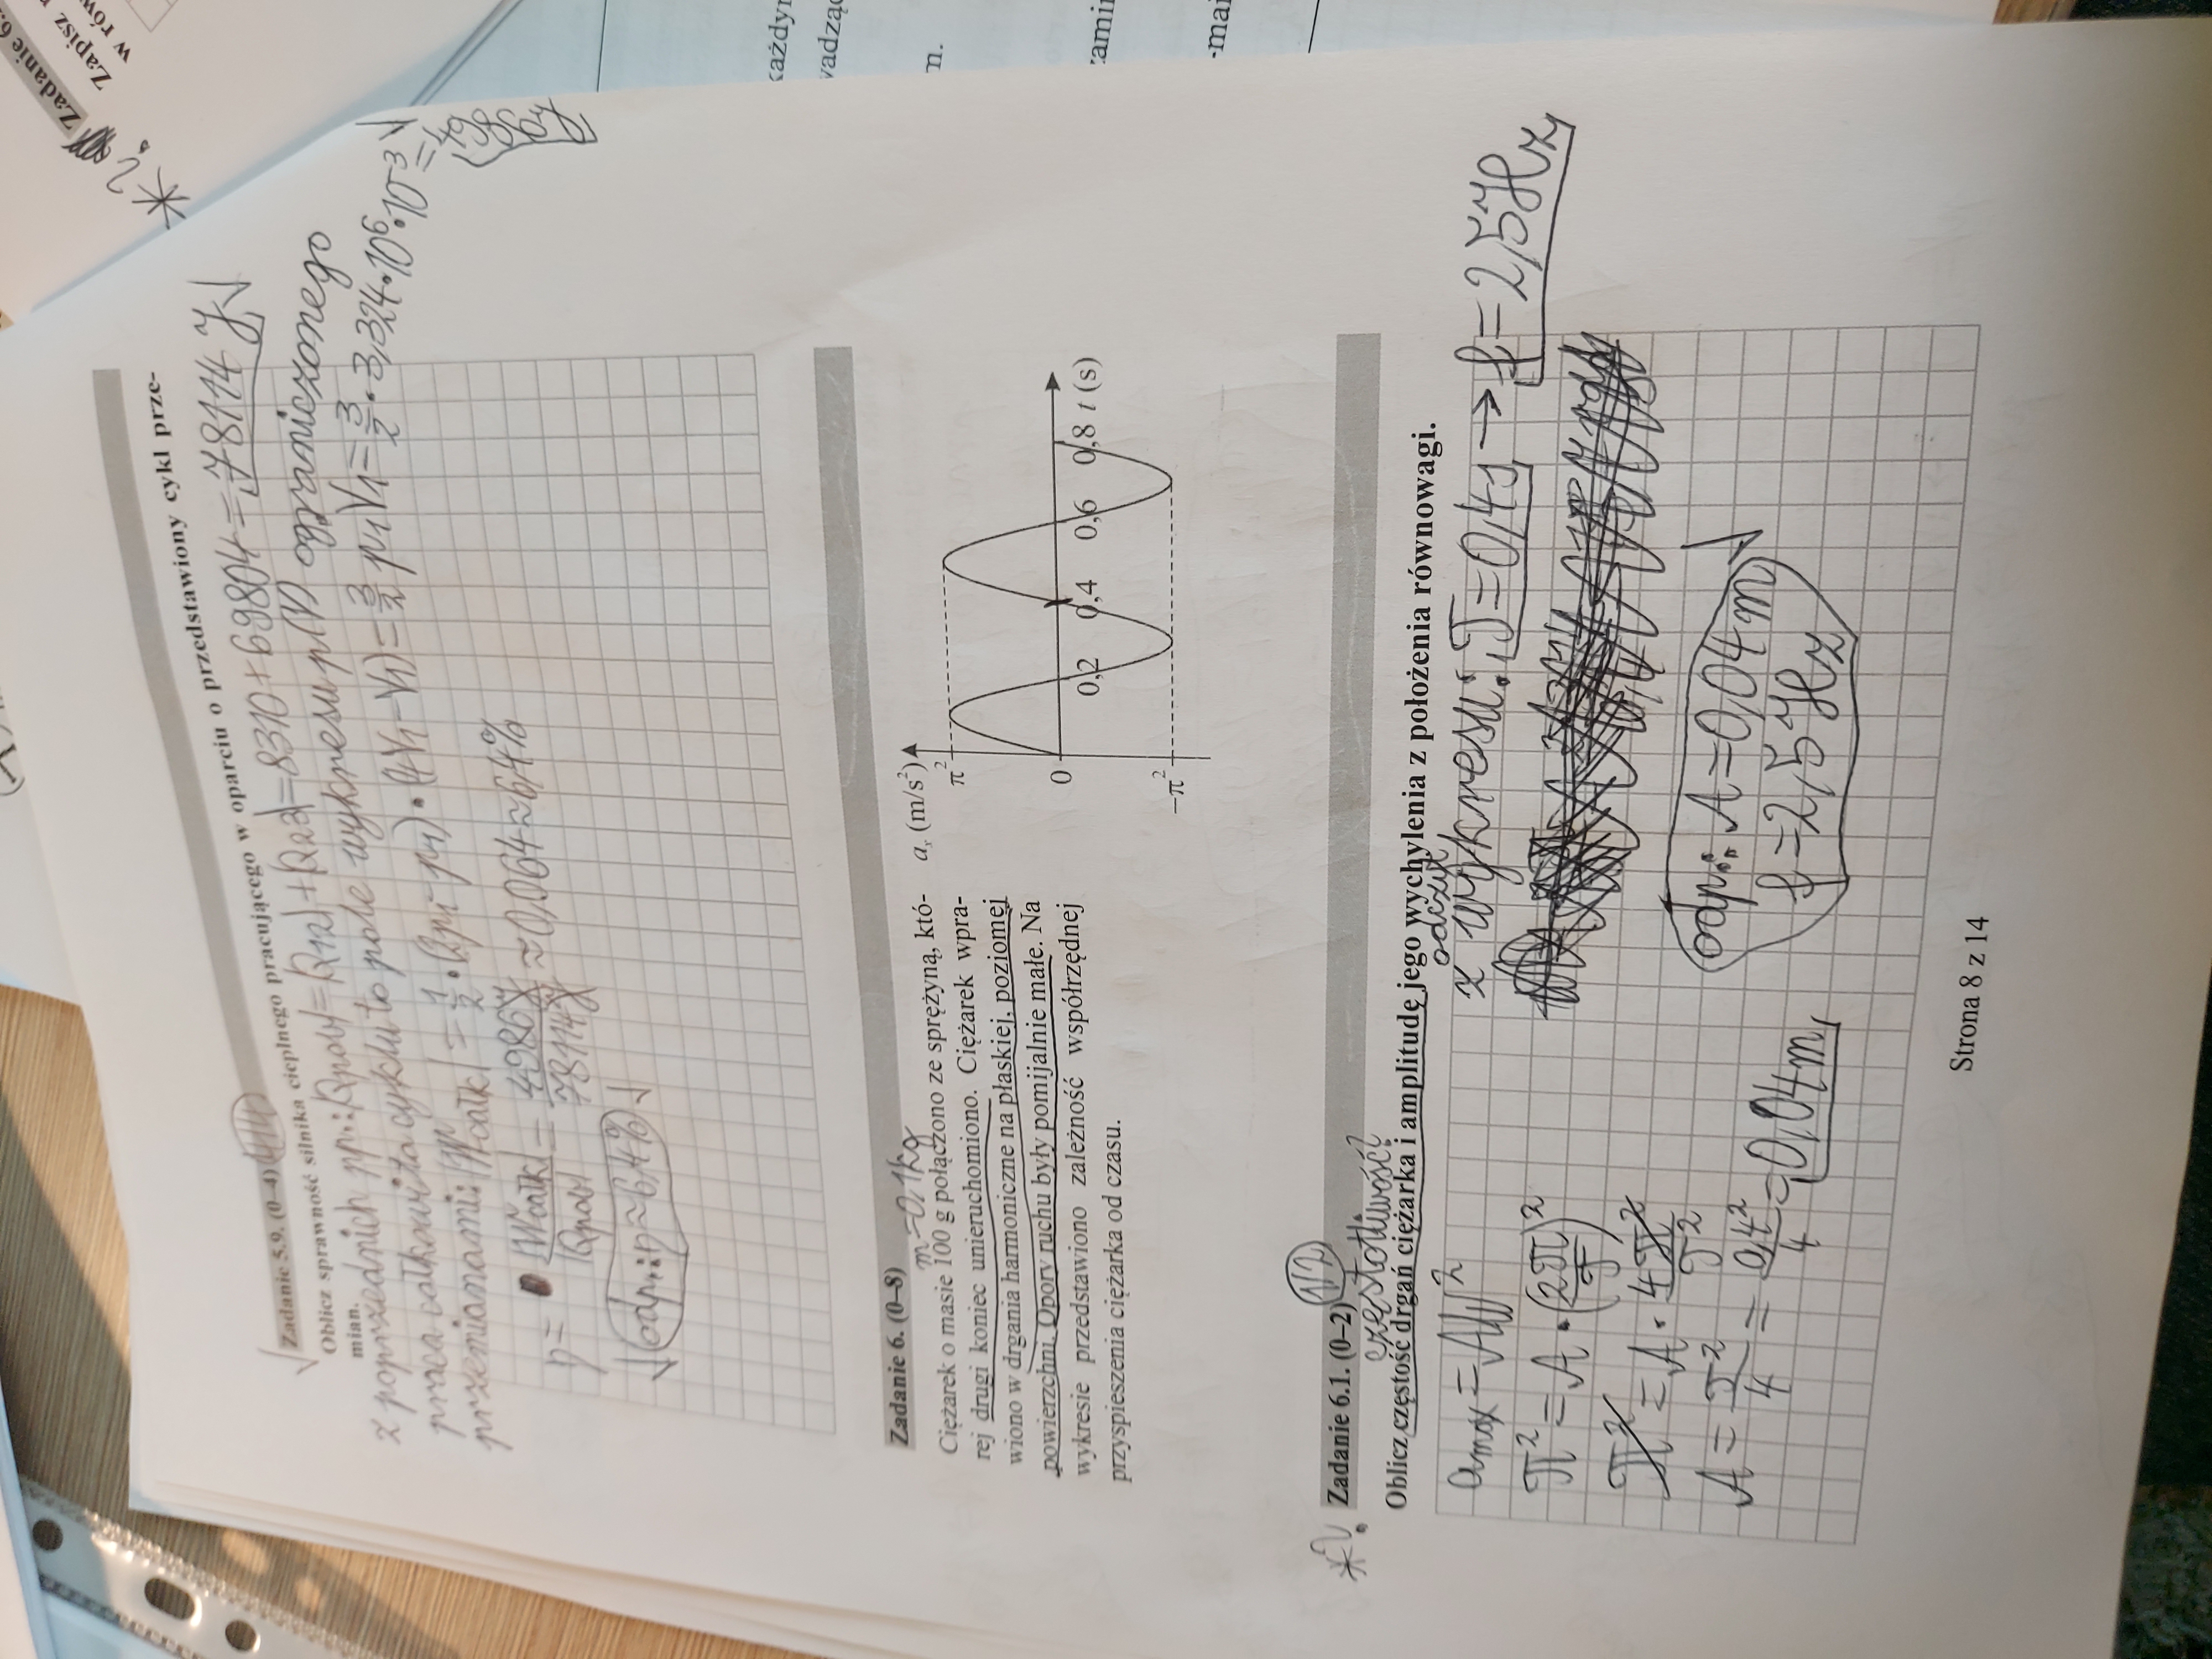 Zadanie 5.9. (0–4) 4/4
Oblicz sprawność silnika cieplnego pracującego w oparciu o przedstawiony cykl prze-
mian.
z poprzednich pp.: Qpob = Q12 + Q23 = 8310 + 69804 = 78114 J
praca całkowita cyklu to pole wykresu p(V) ograniczonego
przemianami: |Wcałk| = 1/2 · (2p1 - p1) · (4V1 - V1) = 3/2 p1V1 = 3/2 · 3,324 · 10^6 · 10^-3 =
4986 J
η = |Wcałk| / Qpob = 4986 J / 78114 J ≈ 0,064 ≈ 6,4%
odp.: η ≈ 6,4%
Zadanie 6. (0–8)
m = 0,1 kg
Ciężarek o masie 100 g połączono ze sprężyną, któ-
rej drugi koniec unieruchomiono. Ciężarek wpra-
wiono w drgania harmoniczne na płaskiej, poziomej
powierzchni. Opory ruchu były pomijalnie małe. Na
wykresie przedstawiono zależność współrzędnej
przyspieszenia ciężarka od czasu.
aₓ (m/s²)
π²
0
−π²
0,2 0,4 0,6 0,8 t (s)
*?. Zadanie 6.1. (0–2) 1/2
częstotliwość?
Oblicz częstość drgań ciężarka i amplitudę jego wychylenia z położenia równowagi.
odczyt
amax = Aω²
z wykresu: T = 0,4 s → f = 2,5 Hz
π² = A · (2π/T)²
π² = A · 4π²/T²
A = T²/4 = 0,4²/4 = 0,04 m
odp.: A = 0,04 m
f = 2,5 Hz
Strona 8 z 14
Zadanie 6.
Zapisz
w rów
każdy
wadzą
m.